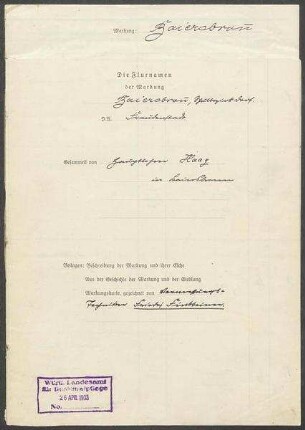 Markung: Baiersbronn
Die Flurnamen
der Markung
Baiersbronn,
O.A. Freudenstadt
Gesammelt von Hauptlehrer Haag
in
Beilagen: Beschreibung der Markung und ihrer Teile
Aus der Geschichte der Markung und der Siedlung
Markungskarte, gezeichnet von
Techniker
Württ. Landesamt
für Denkmalpflege
26 APR 1933
No.